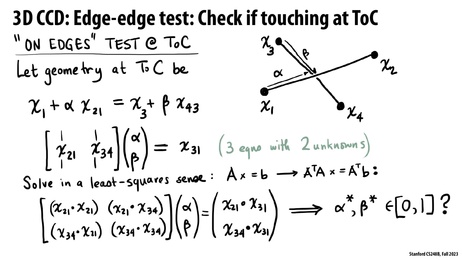 3D CCD: Edge-edge test: Check if touching at ToC
"ON EDGES" TEST @ ToC
Let geometry at ToC be
x₁ + α x₂₁ = x₃ + β x₄₃
[x₂₁ x₃₄] (α β) = x₃₁ (3 eqns with 2 unknowns)
Solve in a least-squares sense: A x = b → AᵀA x = Aᵀb:
[(x₂₁·x₂₁) (x₂₁·x₃₄)
(x₃₄·x₂₁) (x₃₄·x₃₄)] (α β) = (x₂₁·x₃₁
x₃₄·x₃₁) ⟹ α*, β* ∈[0,1] ?
x₃
β
x₂
α
x₁
x₄
Stanford CS248B, Fall 2023